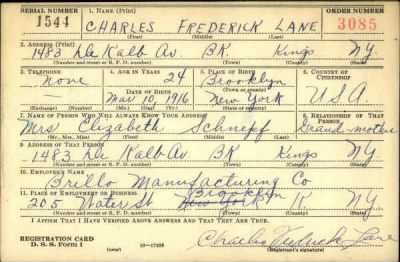 SERIAL NUMBER 1. NAME (Print) ORDER NUMBER
1544 CHARLES FREDERICK LANE 3085
(First) (Middle) (Last)
2. ADDRESS (Print)
1483 De Kalb Av. BK Kings NY
(Number and street or R. F. D. number) (Town) (County) (State)
3. TELEPHONE 4. AGE IN YEARS 5. PLACE OF BIRTH 6. COUNTRY OF CITIZENSHIP
None 24 Brooklyn
DATE OF BIRTH (Town or county)
Mar 10, 1916 New York U.S.A.
(Exchange) (Number) (Mo.) (Day) (Yr.) (State or country)
7. NAME OF PERSON WHO WILL ALWAYS KNOW YOUR ADDRESS 8. RELATIONSHIP OF THAT PERSON
Mrs Elizabeth Schnepf Grand-mother
(Mr., Mrs., Miss) (First) (Middle) (Last)
9. ADDRESS OF THAT PERSON
1483 De Kalb Av BK Kings NY
(Number and street or R. F. D. number) (Town) (County) (State)
10. EMPLOYER'S NAME
Brillo Manufacturing Co
11. PLACE OF EMPLOYMENT OR BUSINESS Brooklyn
205 Water St New York K NY
(Number and street or R. F. D. number) (Town) (County) (State)
I AFFIRM THAT I HAVE VERIFIED ABOVE ANSWERS AND THAT THEY ARE TRUE.
REGISTRATION CARD
D. S. S. Form 1 (over) 16—17105 Charles Frederick Lane
(Registrant's signature)